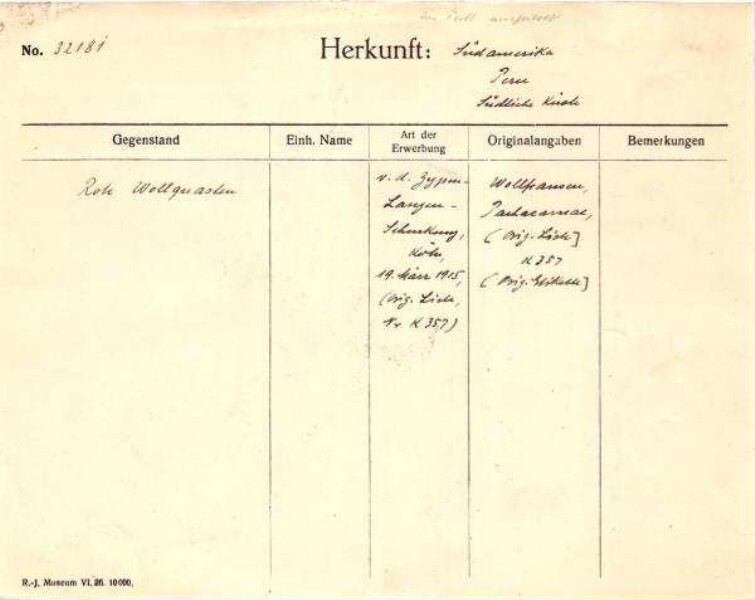 No. 32181
Herkunft: Südamerika
Peru
Südliche Küste
Gegenstand Einh. Name Art der Erwerbung Originalangaben Bemerkungen
Rote Wollquasten
v. d. Zypen-
Langen-
Schenkung,
Köln,
19. März 1915,
(Orig. Liste,
Nr. K 357)
Wollfransen,
Pachacamac,
(Orig. Liste]
K 357
(Orig. Etikette]
R.-J. Museum VI. 26. 10000.